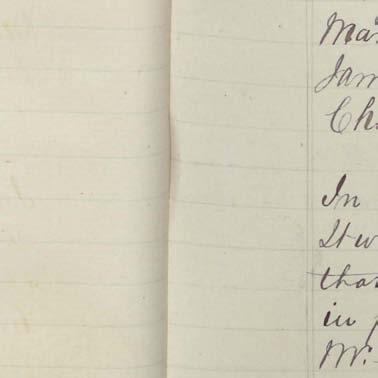 Mar
Jam
Ch
In
It w
tha
in p
Mr.